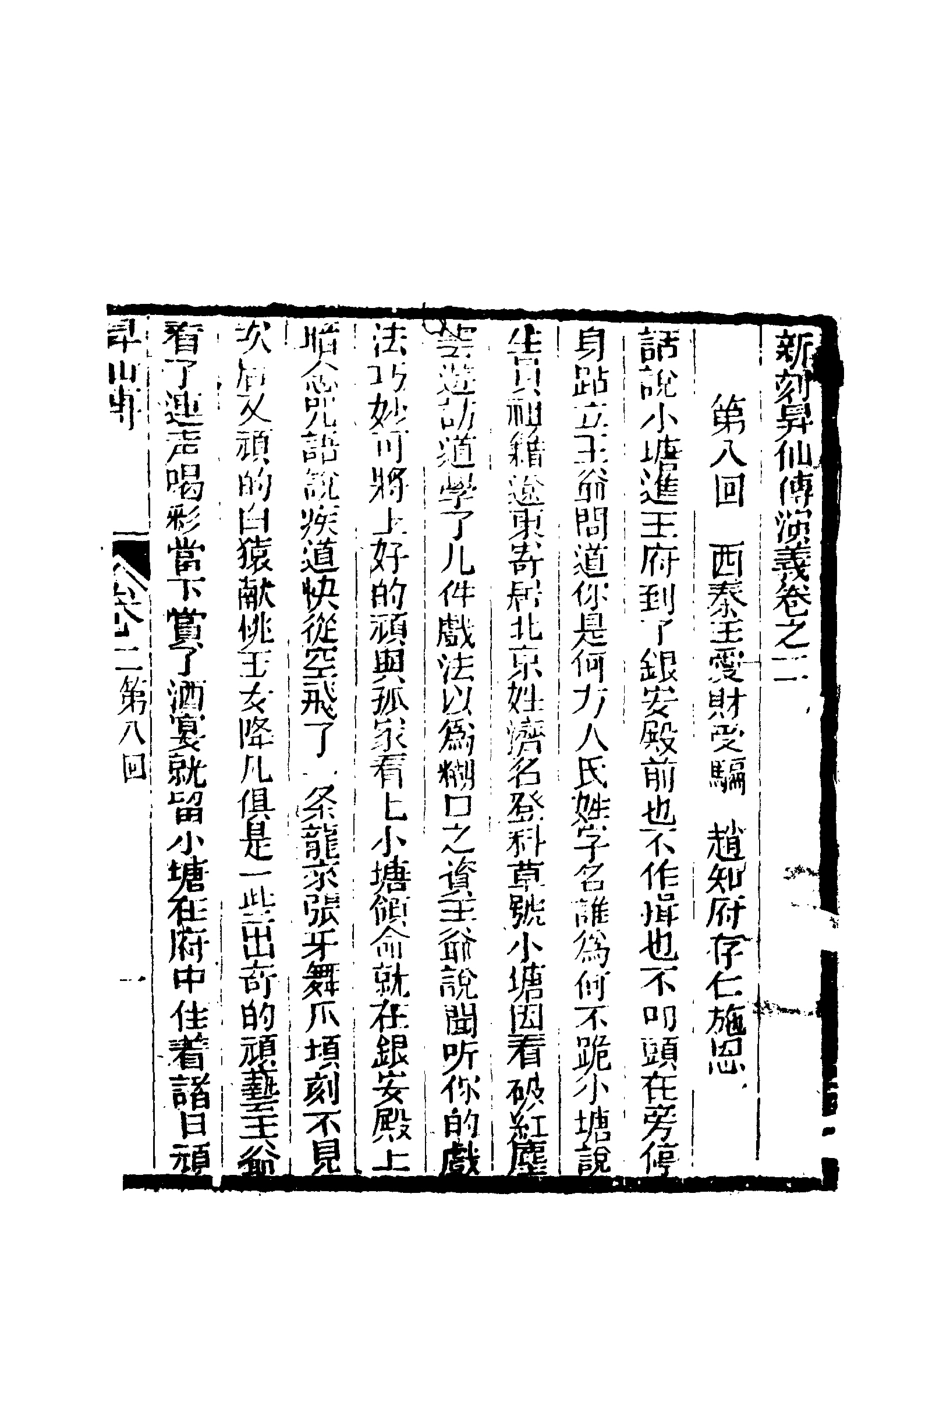 新刻昇仙傳演義卷之二
第八回　西秦王愛財受騙　趙知府存仁施恩
話說小塘進王府到了銀安殿前也不作揖也不叩頭在旁停
身跕立王爺問道你是何方人氏姓字名誰爲何不跪小塘說
生員祖籍遼東寄居北京姓濟名登科草號小塘因看破紅塵
雲遊訪道學了几件戲法以爲糊口之資王爺說聞听你的戲
法巧妙可將上好的頑與孤家看上小塘領命就在銀安殿上
暗念咒語說疾道快從空飛了一条龍來張牙舞爪頃刻不見
次后又頑的白猿献桃玉女降凡俱是一些出奇的頑藝王爺
看了連声喝彩當下賞了酒宴就留小塘在府中住着諸日頑
昇仙傳　卷二第八回　一